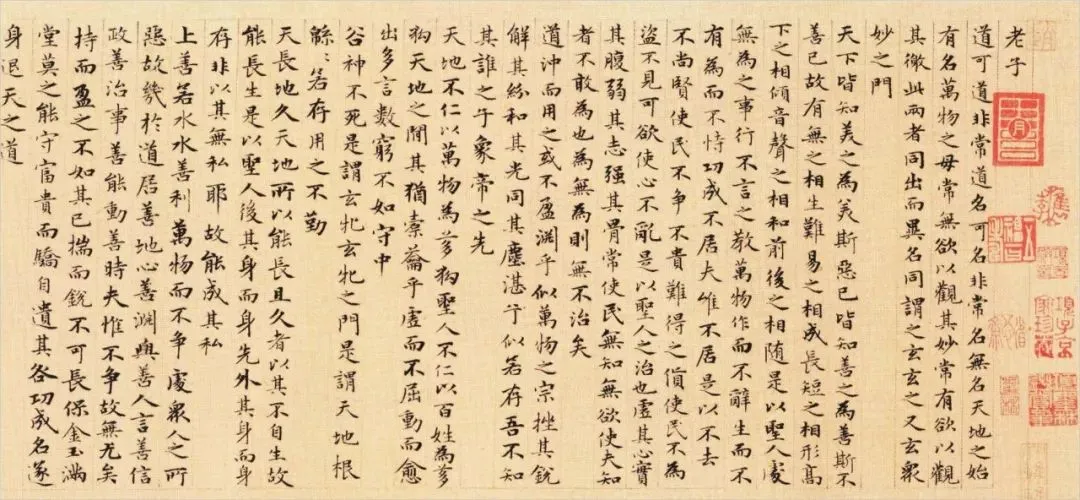 老子
道可道非常道名可名非常名無名天地之始
有名萬物之母常無欲以觀其妙常有欲以觀
其徼此兩者同出而異名同謂之玄玄之又玄眾
妙之門
天下皆知美之為美斯惡已皆知善之為善斯不
善已故有無之相生難易之相成長短之相形高
下之相傾音聲之相和前後之相随是以聖人處
無為之事行不言之教萬物作而不辭生而不
有為而不恃功成不居夫唯不居是以不去
不尚賢使民不争不貴難得之貨使民不為
盜不見可欲使心不亂是以聖人之治也虛其心實
其腹弱其志强其骨常使民無知無欲使夫知
者不敢為也為無為則無不治矣
道沖而用之或不盈渊乎似萬物之宗挫其銳
解其紛和其光同其塵湛兮似若存吾不知
其誰之子象帝之先
天地不仁以萬物為芻狗聖人不仁以百姓為芻
狗天地之間其猶橐籥乎虛而不屈動而愈
出多言數窮不如守中
谷神不死是謂玄牝玄牝之門是謂天地根
緜〻若存用之不勤
天長地久天地所以能長且久者以其不自生故
能長生是以聖人後其身而身先外其身而身
存非以其無私耶故能成其私
上善若水水善利萬物而不争處眾人之所
惡故幾於道居善地心善渊與善人言善信
政善治事善能動善時夫惟不争故無尤矣
持而盈之不如其已揣而銳不可長保金玉滿
堂莫之能守富貴而驕自遺其咎功成名遂
身退天之道